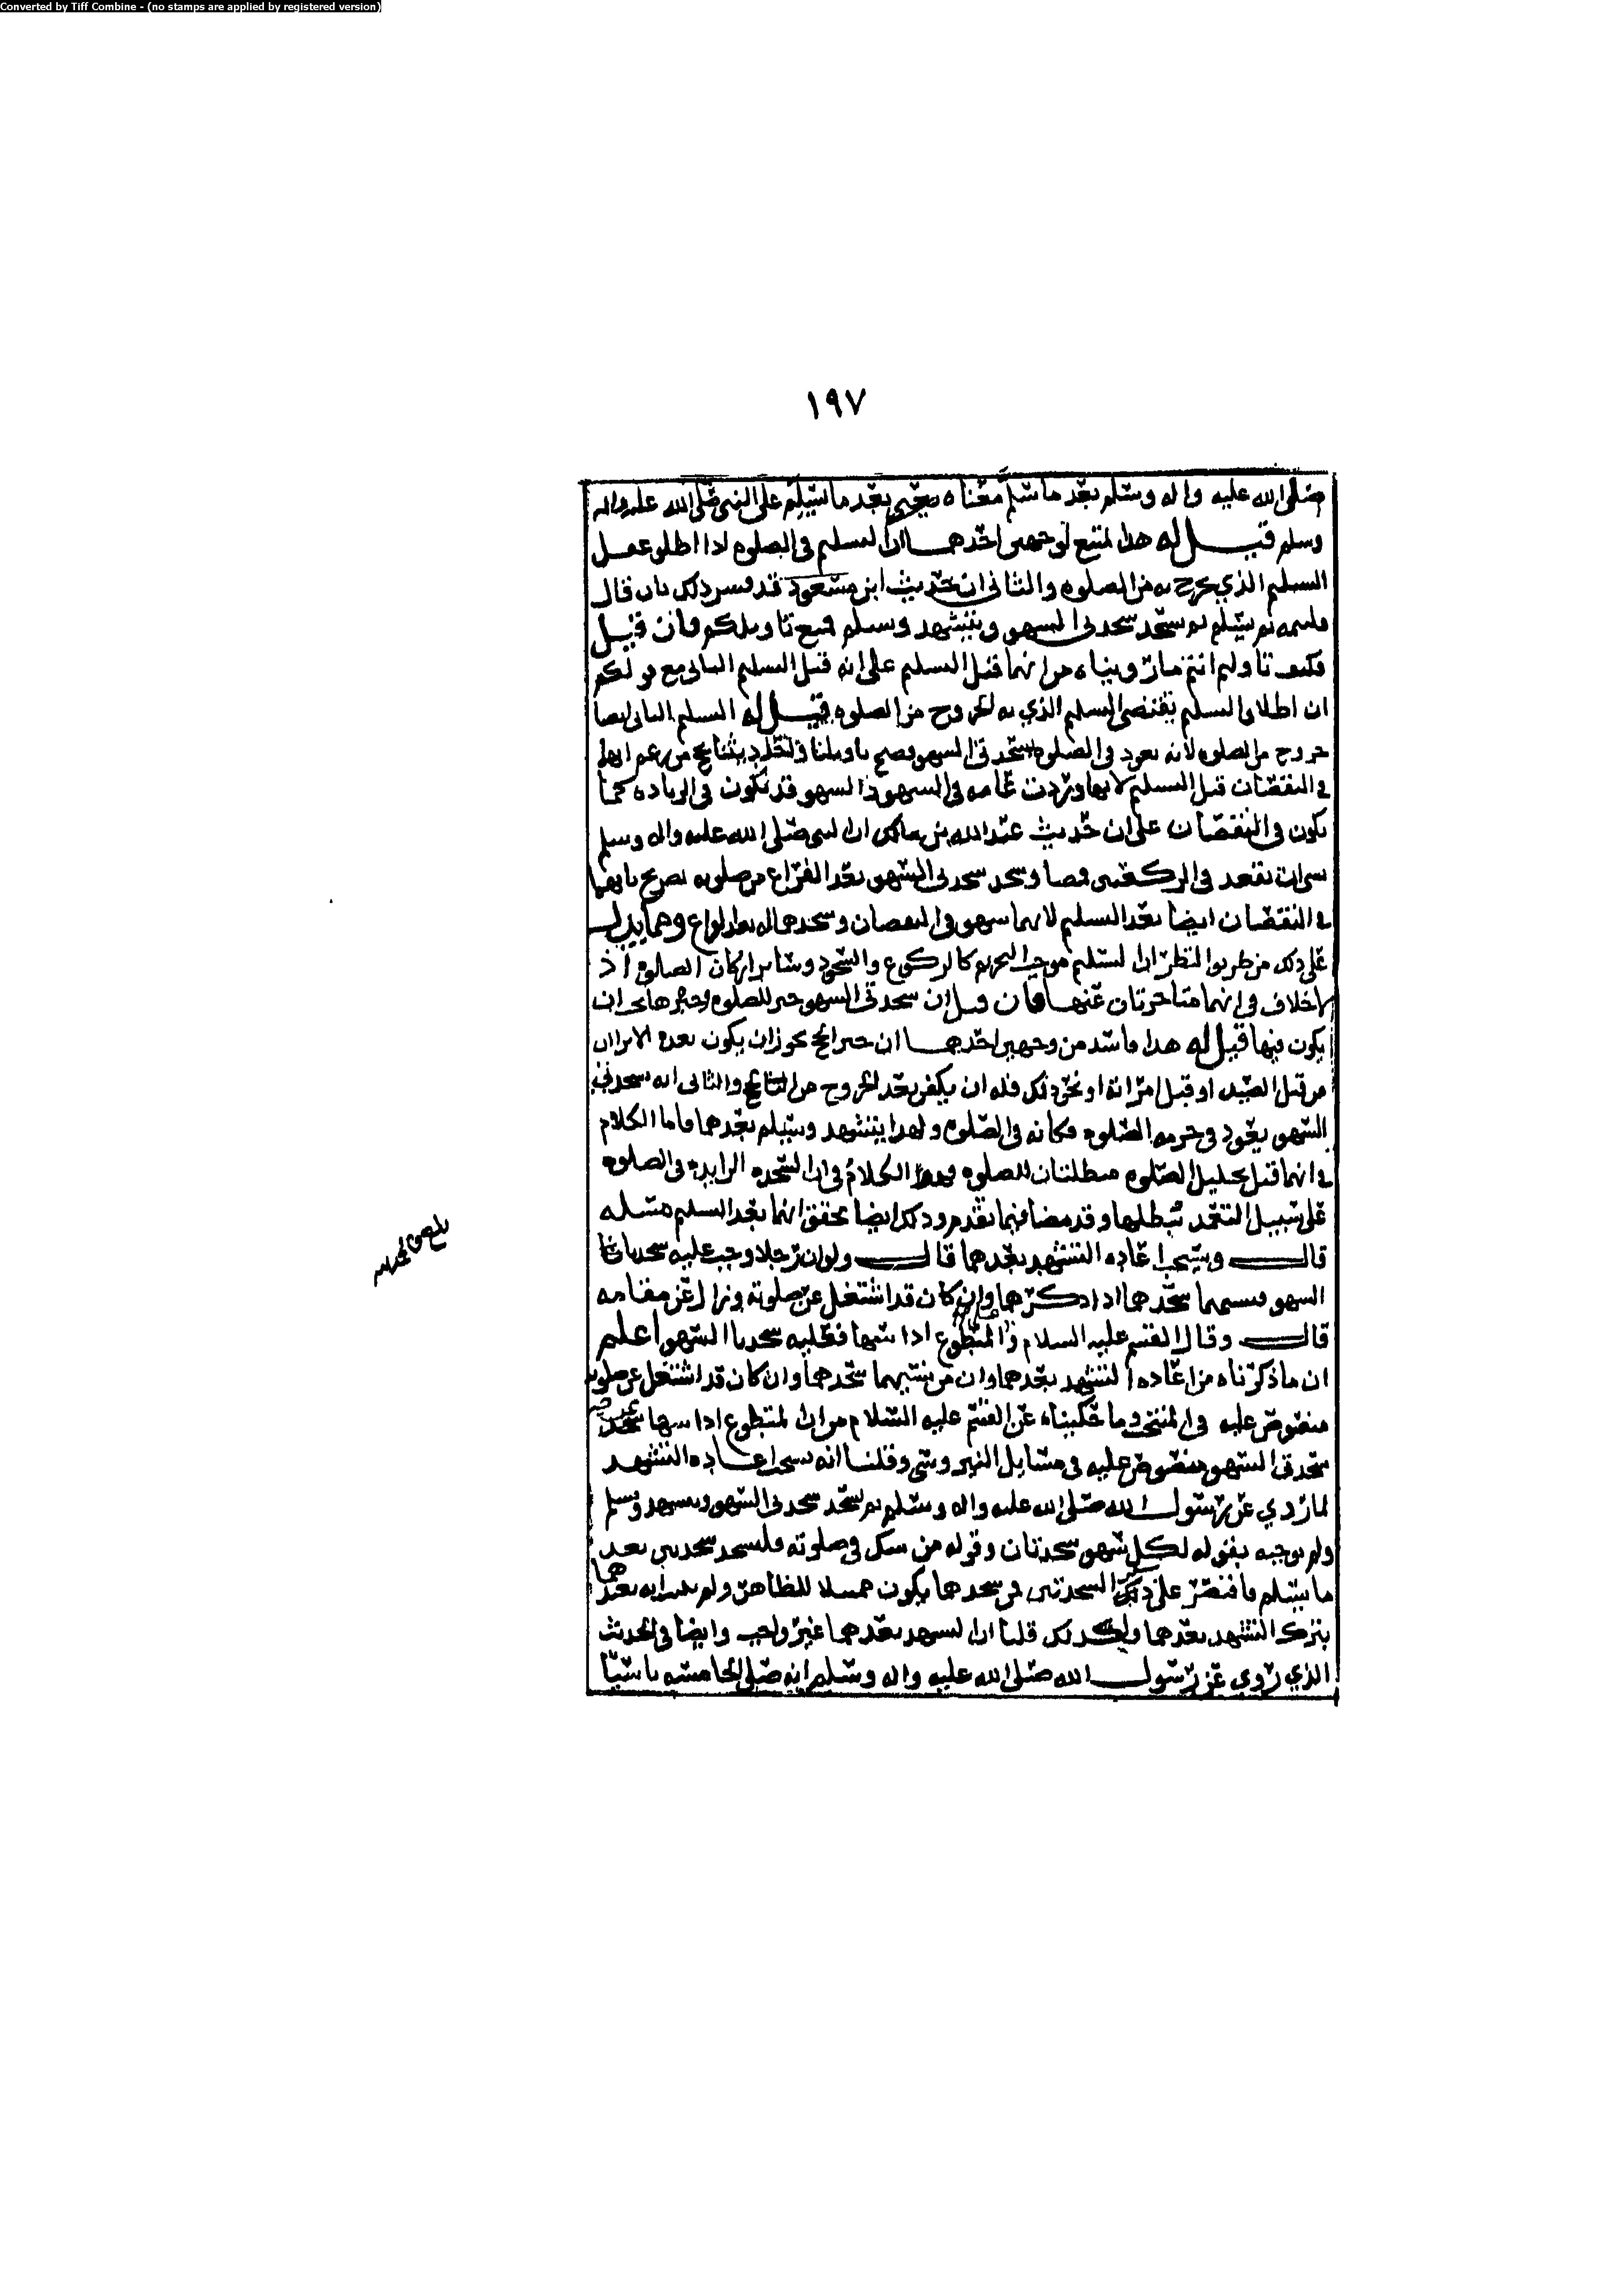 Converted by Tiff Combine - (no stamps are applied by registered version)
١٩٧
صلى الله عليه واله وسلم بعد ما سلم معناه يعني بعد ما سلم على النبي صلى الله عليه واله
وسلم قيل له هذا ممتنع لوجهين احدهما ان التسليم في الصلوه اذا اطلق عمل
التسليم الذي يخرج به من الصلوه والثاني ان حديث ابن مسعود قد فسر ذلك بان قال
فليتمه ثم يسلم ثم يسجد سجدتي السهو ويتشهد ويسلم فمنع تاويلكم فان قيل
فكيف تاولتم انتم ما رويناه من انهما قبل التسليم على انه قبل التسليم الثاني مع قولكم
ان اطلاق التسليم يقتضي التسليم الذي به الخروج من الصلوه قيل له التسليم الثاني ايضا
خروج من الصلوه لانه يعود في الصلوه بسجدتي السهو فصح تاويلنا
في النقصان قبل التسليم لانها وردت عامه في السهو والسهو قد تكون في الزياده كما
يكون في النقصان على ان حديث عبد الله بن مالك ان النبي صلى الله عليه واله وسلم
نسي ان يقعد في الركعتين فمضا وسجد سجدتي السهو بعد الفراغ من صلوته تصريح بانهما
في النقصان ايضا بعد التسليم لانهما سهو في النقصان وسجدهما له بعد الفراغ ومما يدل
على ذلك من طريق النظر ان التسليم موجب التحريم كالركوع والسجود وسائر اركان الصلوه اذ
لا خلاف في انهما متاخرتان عنها فان قيل ان سجدتي السهو جبر للصلوه وجبرها يجب ان
يكون فيها قيل له هذا فاسد من وجهين احدهما ان جبر الحج يجوز ان يكون بعده الا ترا ان
من قتل الصيد او قبل امراته او نحو ذلك فله ان يكفر بعد الخروج من الحج والثاني انه بسجدتي
السهو يعود في حرمه الصلوه فكانه في الصلوه ولهذا يتشهد ويسلم بعدهما فاما الكلام
في انهما قبل تحليل الصلوه مبطلتان للصلوه فهو الكلام في ان السجده الزايده في الصلوه
على سبيل التعمد تبطلها وقد مضا فيما تقدم وذلك ايضا يحقق انهما بعد التسليم مسله
قال ويستحب اعاده التشهد بعدهما قال ولو ان رجلا وجب عليه سجدتا
السهو فنسيهما سجدهما اذا ذكرهما وان كان قد اشتغل عن صلوته وزال عن مقامه
قال وقال القسم عليه السلام في المتطوع اذا سها فعليه سجدتا السهو اعلم
ان ما ذكرناه من اعاده التشهد بعدهما وان من نسيهما سجدهما وان كان قد اشتغل عن صلوته
منصوص عليه في المنتخب وما حكيناه عن القسم عليه السلام من ان المتطوع اذا سها سجد
سجدتي السهو منصوص عليه في مسايل النيروسي وقلنا انه يستحب اعاده التشهد
لما روي عن رسول الله صلى الله عليه واله وسلم ثم يسجد سجدتي السهو ويتشهد ويسلم
ولم نوجبه بقوله لكل سهو سجدتان وقوله من شك في صلوته فليسجد سجدتين بعد
ما يسلم فاقتصر على ذكر السجدتين فمن سجدهما يكون ممتثلا للظاهر ولم يعد بعدهما
بترك التشهد بعدهما ولذلك قلنا ان التشهد بعدهما غير واجب وايضا في الحديث
الذي روي عن رسول الله صلى الله عليه واله وسلم انه صلى الخامسه ناسيا